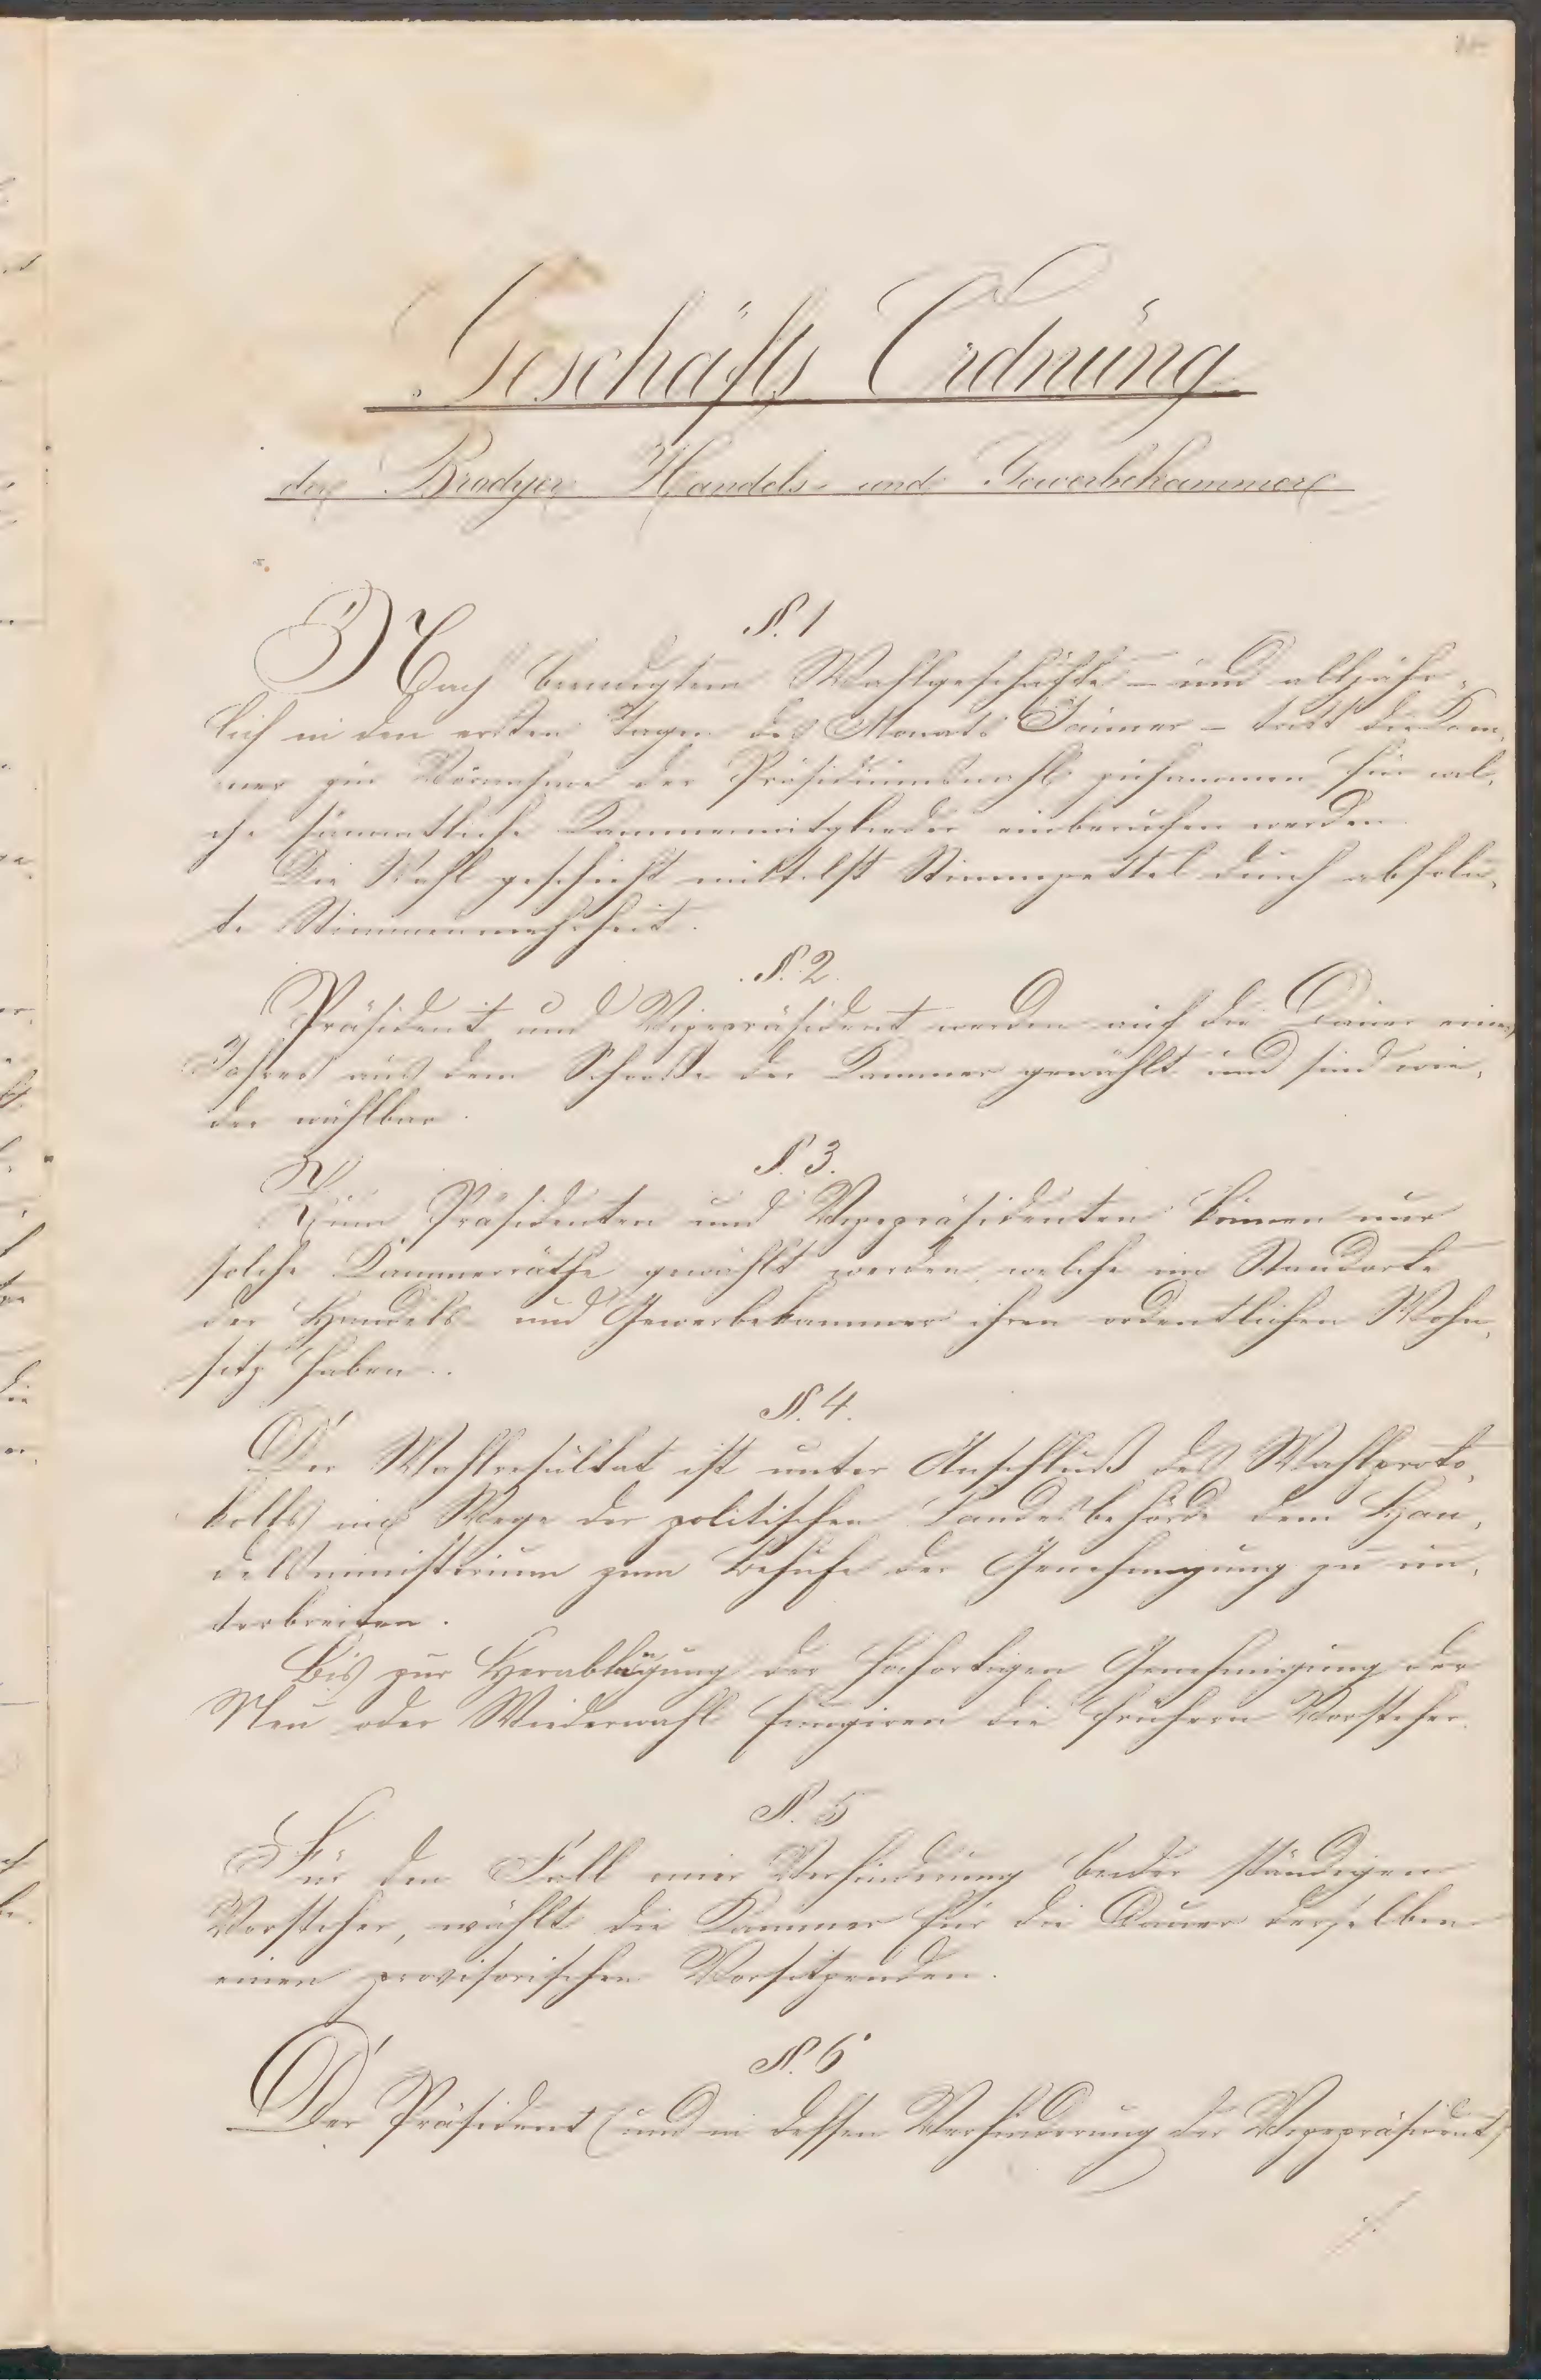 Geschäfts Ordnung
der Brodyer Handels- und Gewerbekammer
§. 1
Nach beendigtem Wahlgeschäfte – und alljähr-
lich in den ersten Tagen des Monats Jänner – tritt die Kam-
mer zur Vornahme der Präsidiumswahl zusammen für wel-
che sämmtliche Kammermitglieder einberufen werden.
Die Wahl geschieht mittelst Stimmzettel durch absolu-
te Stimmenmehrheit.
§. 2.
Präsident und Vizepräsident werden auf die Dauer eines
Jahres aus dem Schooße der Kammer gewählt und sind wie-
der wählbar.
§. 3.
Zum Präsidenten und Vizepräsidenten können nur
solche Kammerräthe gewählt werden, welche im Standorte
der Handels- und Gewerbekammer ihren ordentlichen Wohn-
sitz haben.
§. 4.
Der Wahlresultat ist unter Anschluß des Wahlproto-
kolls im Wege der politischen Landesbehörde dem Han-
delsministerium zum Behufe der Genehmigung zu un-
terbreiten.
Bis zur Herablangung der hohortigen Genehmigung der
Neu oder Wiederwahl fungiren die frühern Vorsteher.
§. 5
Für den Fall einer Verhinderung beider ständigen
Vorsteher, wählt die Kammer für die Dauer derselben
einen provisorischen Vorsitzenden.
§. 6
Der Präsident (und in dessen Verhinderung der Vizepräsident)